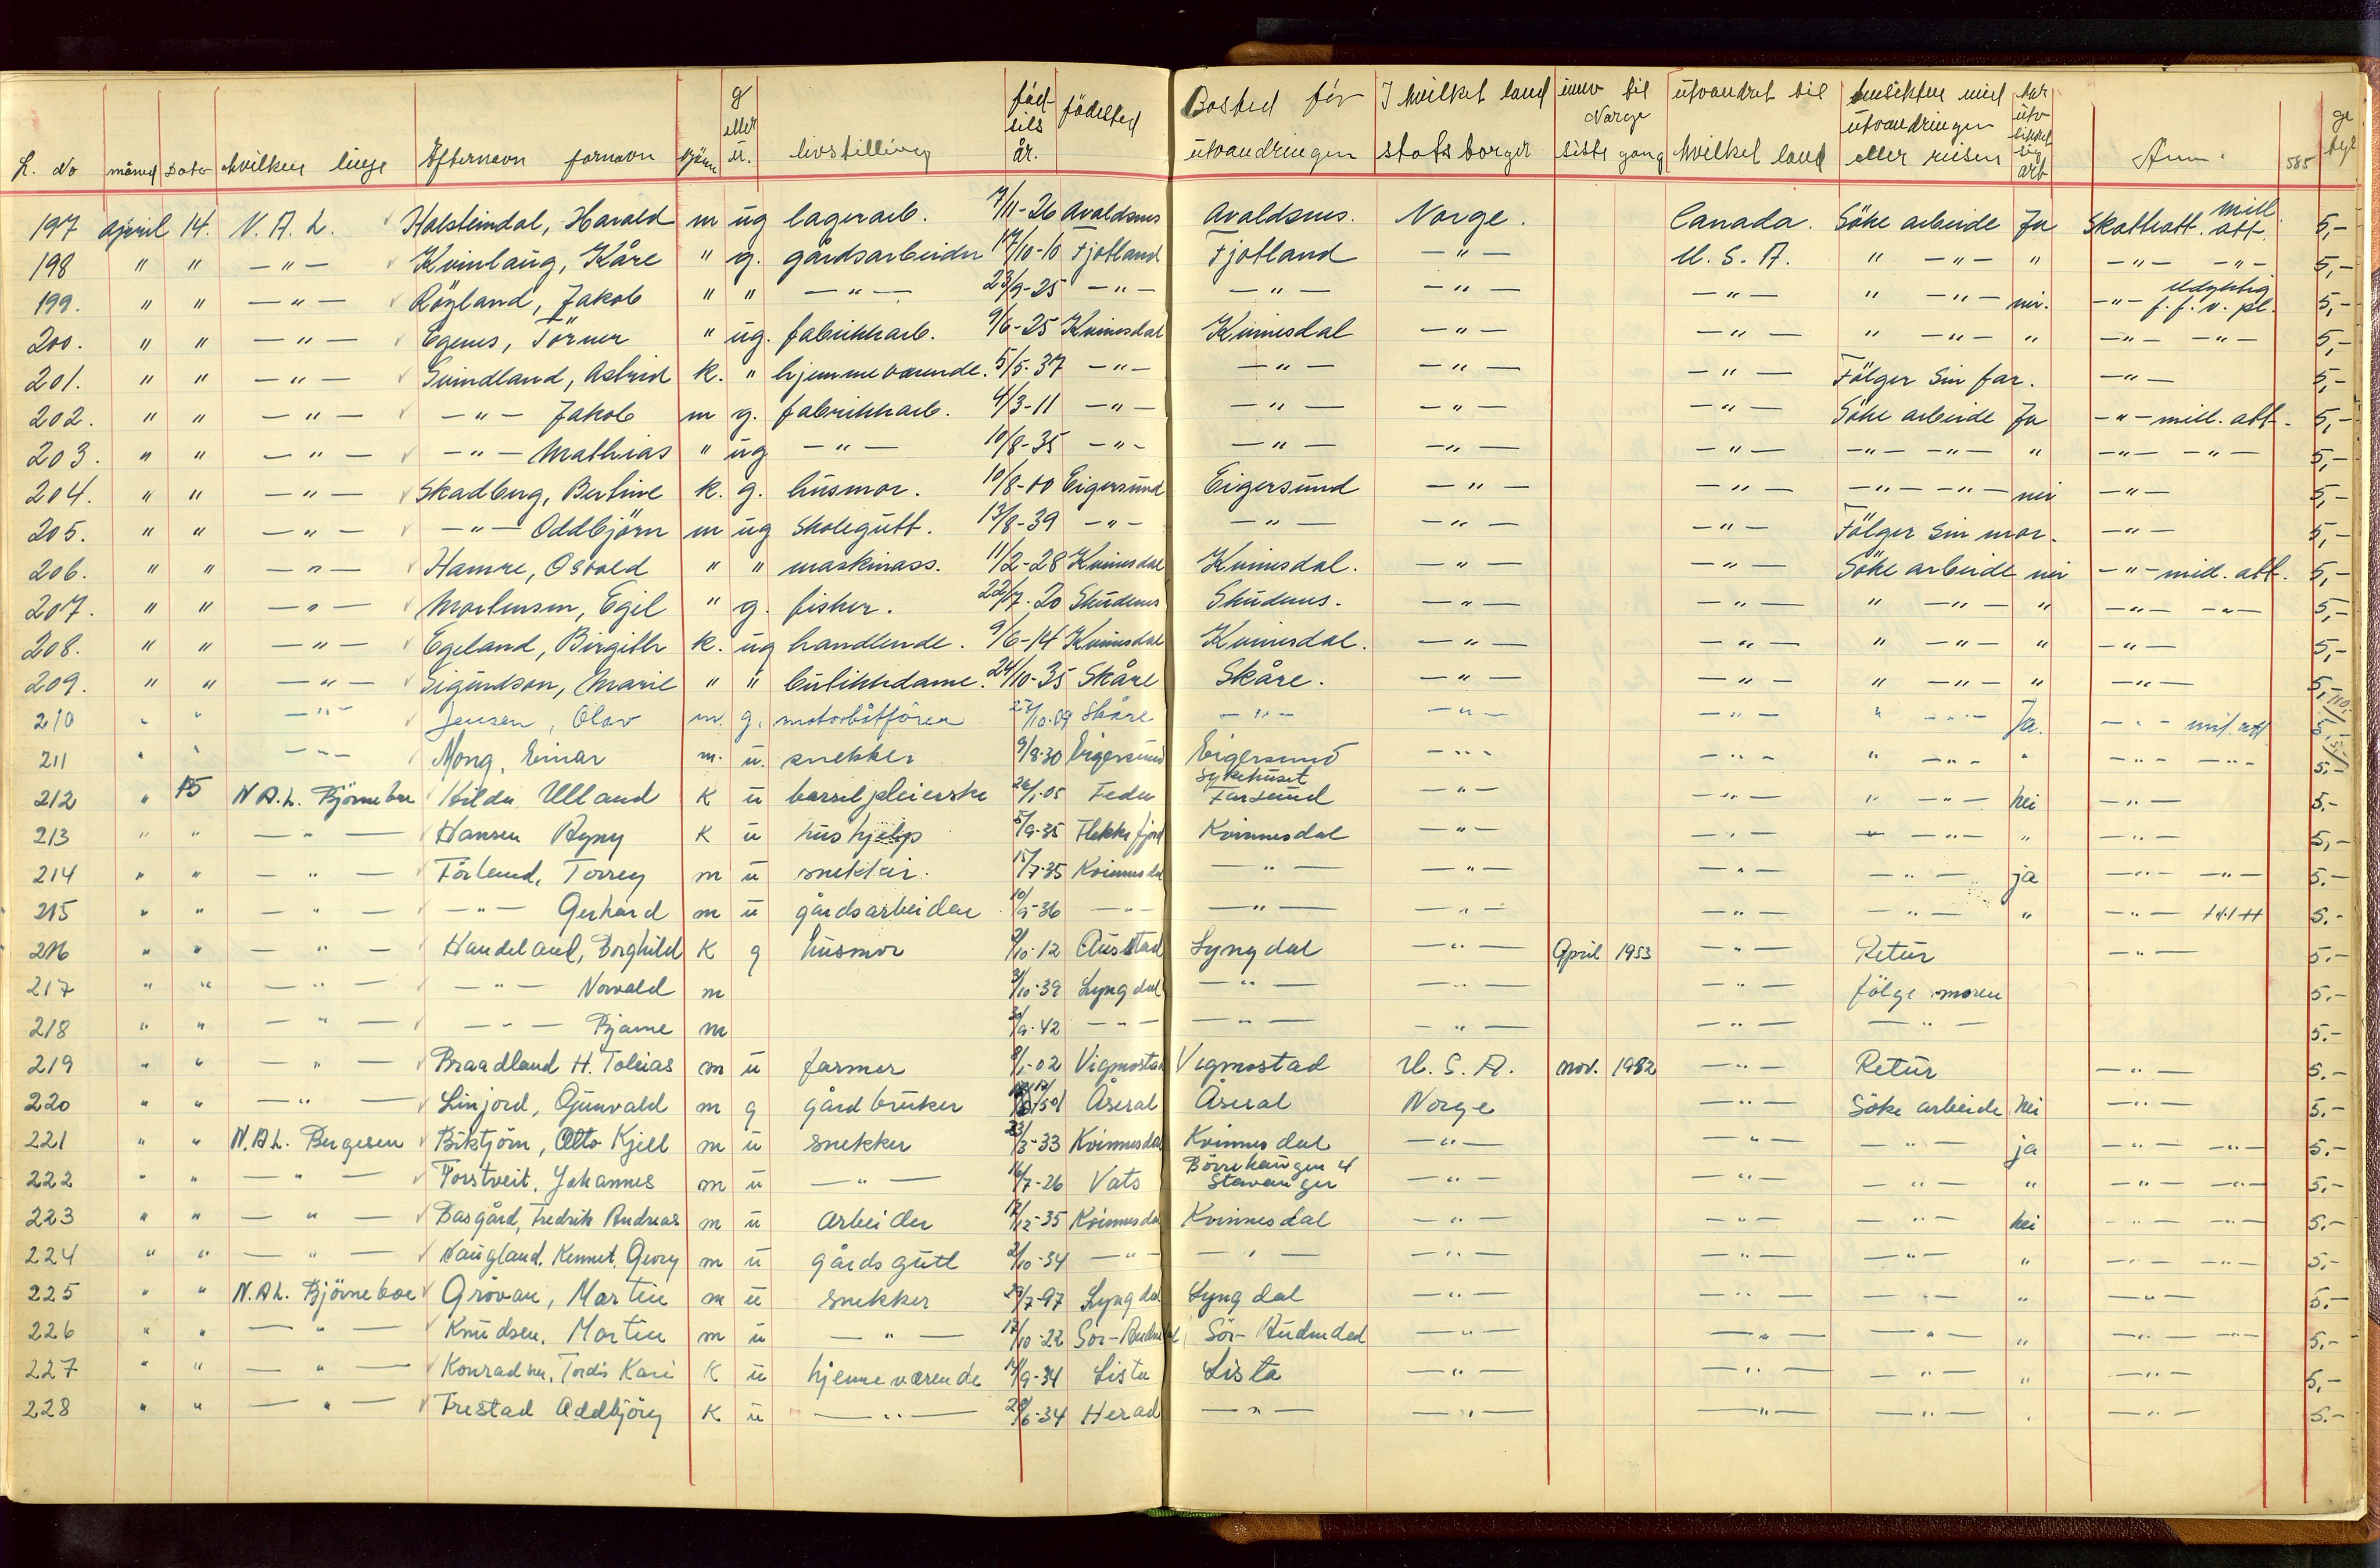 L. No måned Dato hvilken linje Efternavn fornavn kjönn g eller u. livsstilling födsels år. födested Bosted för utvandringen I hvilket land statsborger innv til Norge siste gang utvandret til hvilket land hensikten med utvandringen eller reisen har utv sikret sig arb Anm. 585 ge byr
197 april 14. N. A. L. Halsteindal, Harald m ug lagerarb. 7/11-26 Avaldsnes Avaldsnes. Norge. Canada. Söke arbeide Ja Skatteatt. mill. att. 5,-
198 " " -"- Kvinlaug, Kåre " g. gårdsarbeider 17/10-10 Fjotland Fjotland -"- U. S. A. " -"- " -"- -"- 5,-
199. " " -"- Röyland, Jakob " " -"- 23/9-25 -"- -"- -"- -"- " -"- nei. -"- udyktig f. f. v. pl. 5,-
200. " " -"- Egenes, Törner " ug. fabrikkarb. 9/6-25 Kvinesdal Kvinesdal -"- -"- " -"- " -"- -"- 5,-
201. " " -"- Svindland, Astrid k. " hjemmeværende. 5/5-37 -"- -"- -"- -"- Fölger sin far. -"- 5,-
202. " " -"- -"- Jakob m g. fabrikkarb. 4/3-11 -"- -"- -"- -"- Söke arbeide Ja -"- mill. att. 5,-
203. " " -"- -"- Mathias " ug -"- 10/8-35 -"- -"- -"- -"- -"- -"- " -"- -"- 5,-
204. " " -"- Skadberg, Bertine k. g. husmor. 10/8-00 Eigersund Eigersund -"- -"- -"- -"- nei -"- 5,-
205. " " -"- -"- Oddbjörn m ug skolegutt. 13/8-39 -"- -"- -"- -"- Fölger sin mor. -"- 5,-
206. " " -"- Hamre, Osvald " " maskinass. 11/2-28 Kvinesdal Kvinesdal. -"- -"- Söke arbeide nei -"- mil. att. 5,-
207. " " -"- Mortensen, Egil " g. fisker. 22/7-20 Skudenes Skudenes. -"- -"- " -"- " -"- -"- 5,-
208. " " -"- Egeland, Birgith k. ug handlende. 9/6-14 Kvinesdal Kvinesdal. -"- -"- " -"- " -"- 5,-
209. " " -"- Sigurdson, Marie " " butikkdame. 24/10-35 Skåre Skåre. -"- -"- " -"- " -"- 5,-
210 " " -"- Jensen, Olav m. g. motorbåtförer 27/10-09 Skåre -"- -"- -"- " -"- Ja. -"- mil. att 5,-
211 " " -"- Mong, Einar m. u. snekker 9/8-30 Eigersund Eigersund -"- -"- " -"- " -"- -"- 5.-
212 " 15 N A. L. Björneboe Hilda Ulland K u barselpleierske 26/1-05 Feda Sykehuset Farsund -"- -"- " -"- nei -"- 5.-
213 " " -"- Hansen Agny K u hushjelp 5/9-35 Flekkefjord Kvinnesdal -"- -"- " -"- " -"- 5,-
214 " " -"- Förland, Torrey m u snekker. 15/7-35 Kvinnesdal -"- -"- -"- -"- ja -"- -"- 5.-
215 " " -"- -"- Gerhard m u gårdsarbeider 10/9-36 -"- -"- -"- -"- -"- " -"- 5.-
216 " " -"- Handeland, Borghild K g husmor 2/10-12 Austad Lyngdal -"- April 1953 -"- Retur -"- 5.-
217 " " -"- -"- Norvald m 3/10-39 Lyngdal -"- -"- -"- fölge moren 5.-
218 " " -"- -"- Bjarne m 30/9-42 -"- -"- -"- -"- -"- 5.-
219 " " -"- Braadland H. Tobias m u farmer 9/1-02 Vigmostad Vegmostad U. S. A. nov. 1952 -"- Retur -"- 5.-
220 " " -"- Linjord, Gunvald m g gårdbruker Åseral Åseral Norge -"- Söke arbeide nei -"- 5.-
221 " " N. A L. Bergesen Biktjörn, Otto Kjell m u snekker 23/3-33 Kvinnesdal Kvinnesdal -"- -"- -"- ja -"- -"- 5.-
222 " " -"- Torstveit, Johannes m u -"- 16/7-26 Vats Börrehaugen 4 Stavanger -"- -"- -"- " -"- -"- 5,-
223 " " -"- Basgård, Fredrik Andreas m u arbeider 12/12-35 Kvinnesdal Kvinnesdal -"- -"- -"- nei -"- -"- 5.-
224 " " -"- Haugland, Kennet, Georg m u gårdsgutt 2/10-34 -"- -"- -"- -"- -"- " -"- -"- 5,-
225 " " N. A L. Björneboe Grövan, Martin m u snekker 29/7-97 Lyngdal Lyngdal -"- -"- -"- " -"- 5.-
226 " " -"- Knudsen, Martin m u -"- 17/10-22 Sör-Audnedal Sör-Audnedal -"- -"- -"- " -"- -"- 5.-
227 " " -"- Konradsen, Tordis Kari K u hjemmeværende 14/9-34 Lista Lista -"- -"- -"- " -"- 5,-
228 " " -"- Frestad Oddbjörg K u -"- 28/6-34 Herad -"- -"- -"- -"- " -"- 5.-